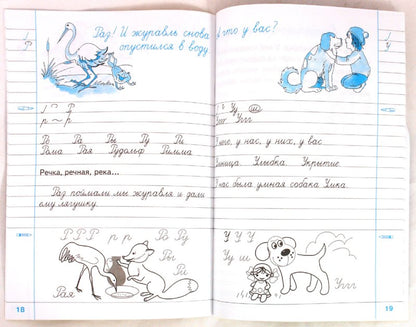 Раз! И журавль снова
опустился в воду
1 Р
р ~ р
Ро Ра Ры Ру Ри
Рома Рая Рудольф Римма
Речка, речная, река...
Раз поймали мы журавля и дали
ему лягушку.
Р Р Р р р Ро Ру
Ры
Ри
Рая
18
А что у вас?
1
У
Уу ш
у нас, у них, у вас
Улыбка. Укрытие
У нас была умная собака Умка.
У У У
У у ш
19